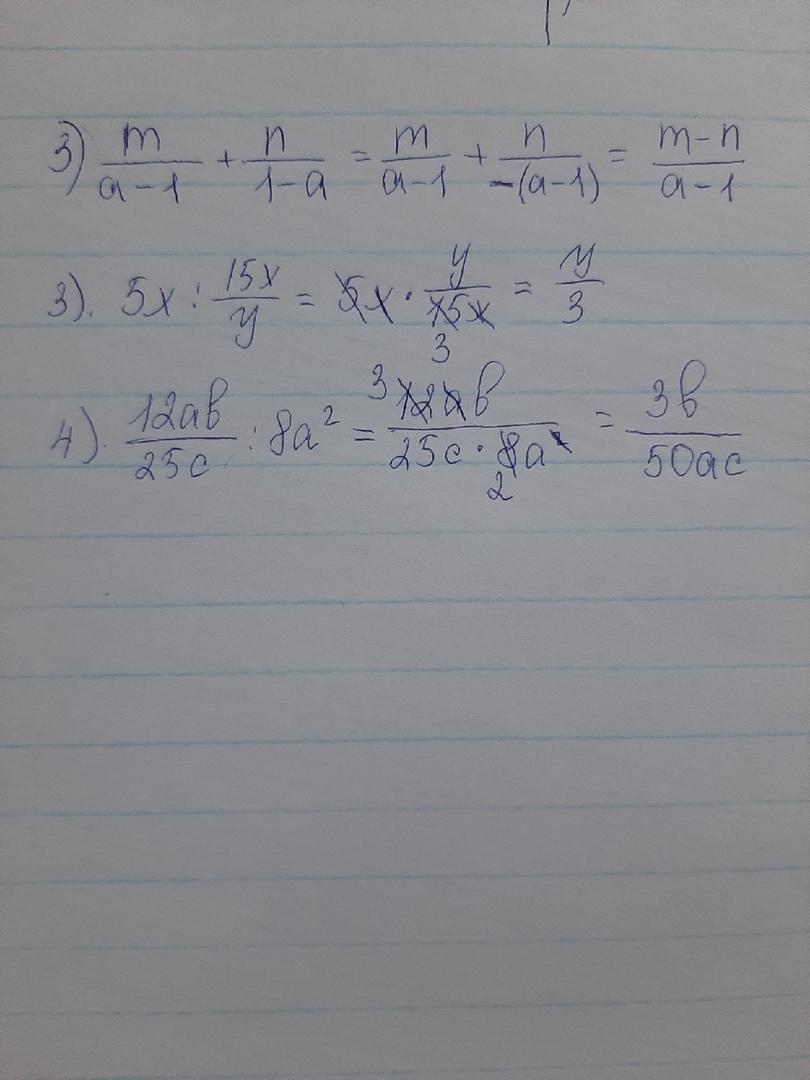 3) m/(a-1) + n/(1-a) = m/(a-1) + n/(-(a-1)) = (m-n)/(a-1)
3). 5x : 15x/y = 5x · y/15x 3 = y/3
4). 12ab/25c : 8a² = 3 12ab/(25c · 8a²) 2 = 3b/50ac